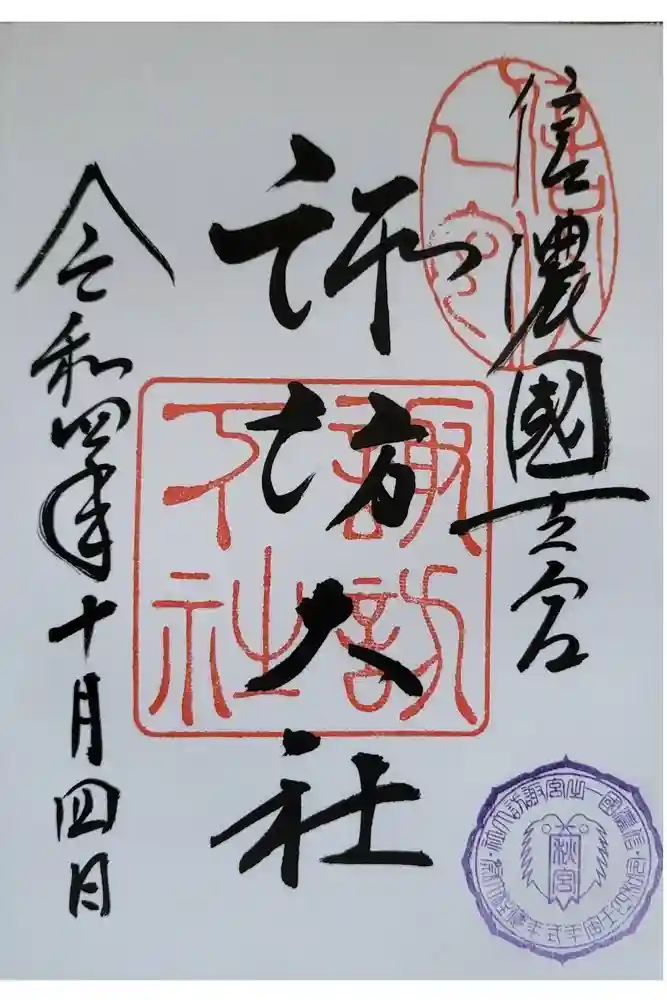 信濃國一之宮
信州
一宮
諏訪大社
諏訪
下社
令和四年十月四日
信濃國一之宮諏訪大社
秋宮